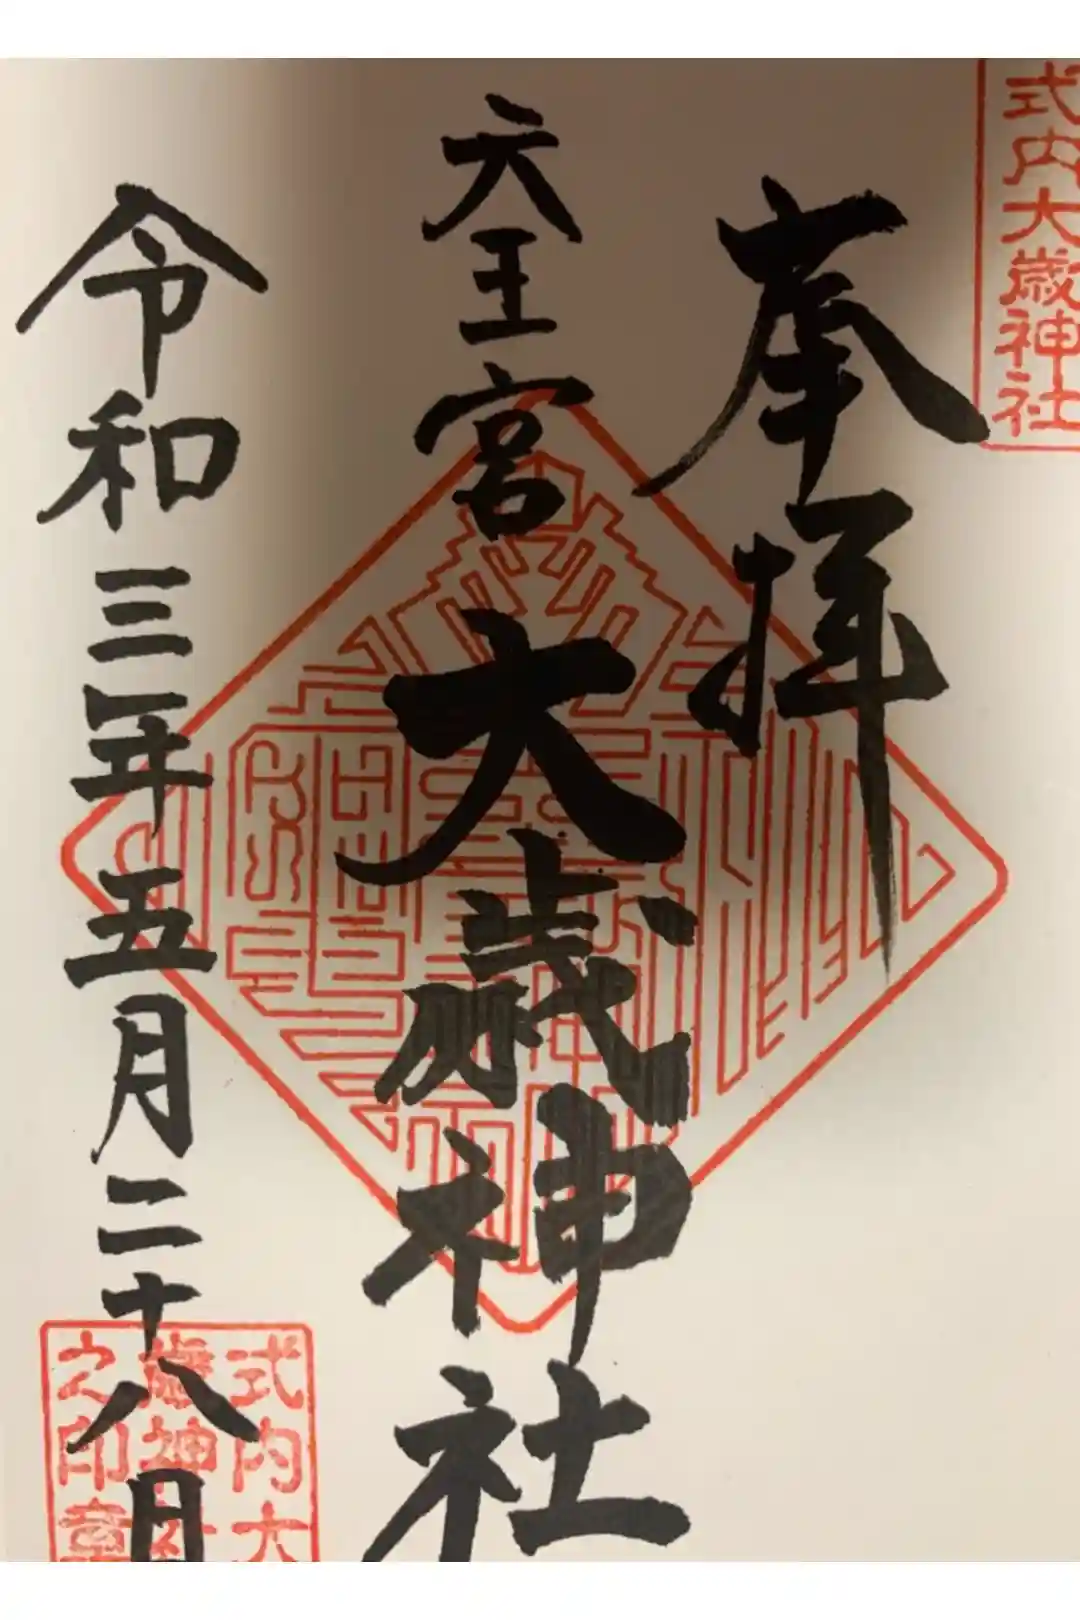 式内大歳神社
奉拝
天王宮
大歳神社
令和三年五月二十八日
式内大
歳神社
之印章